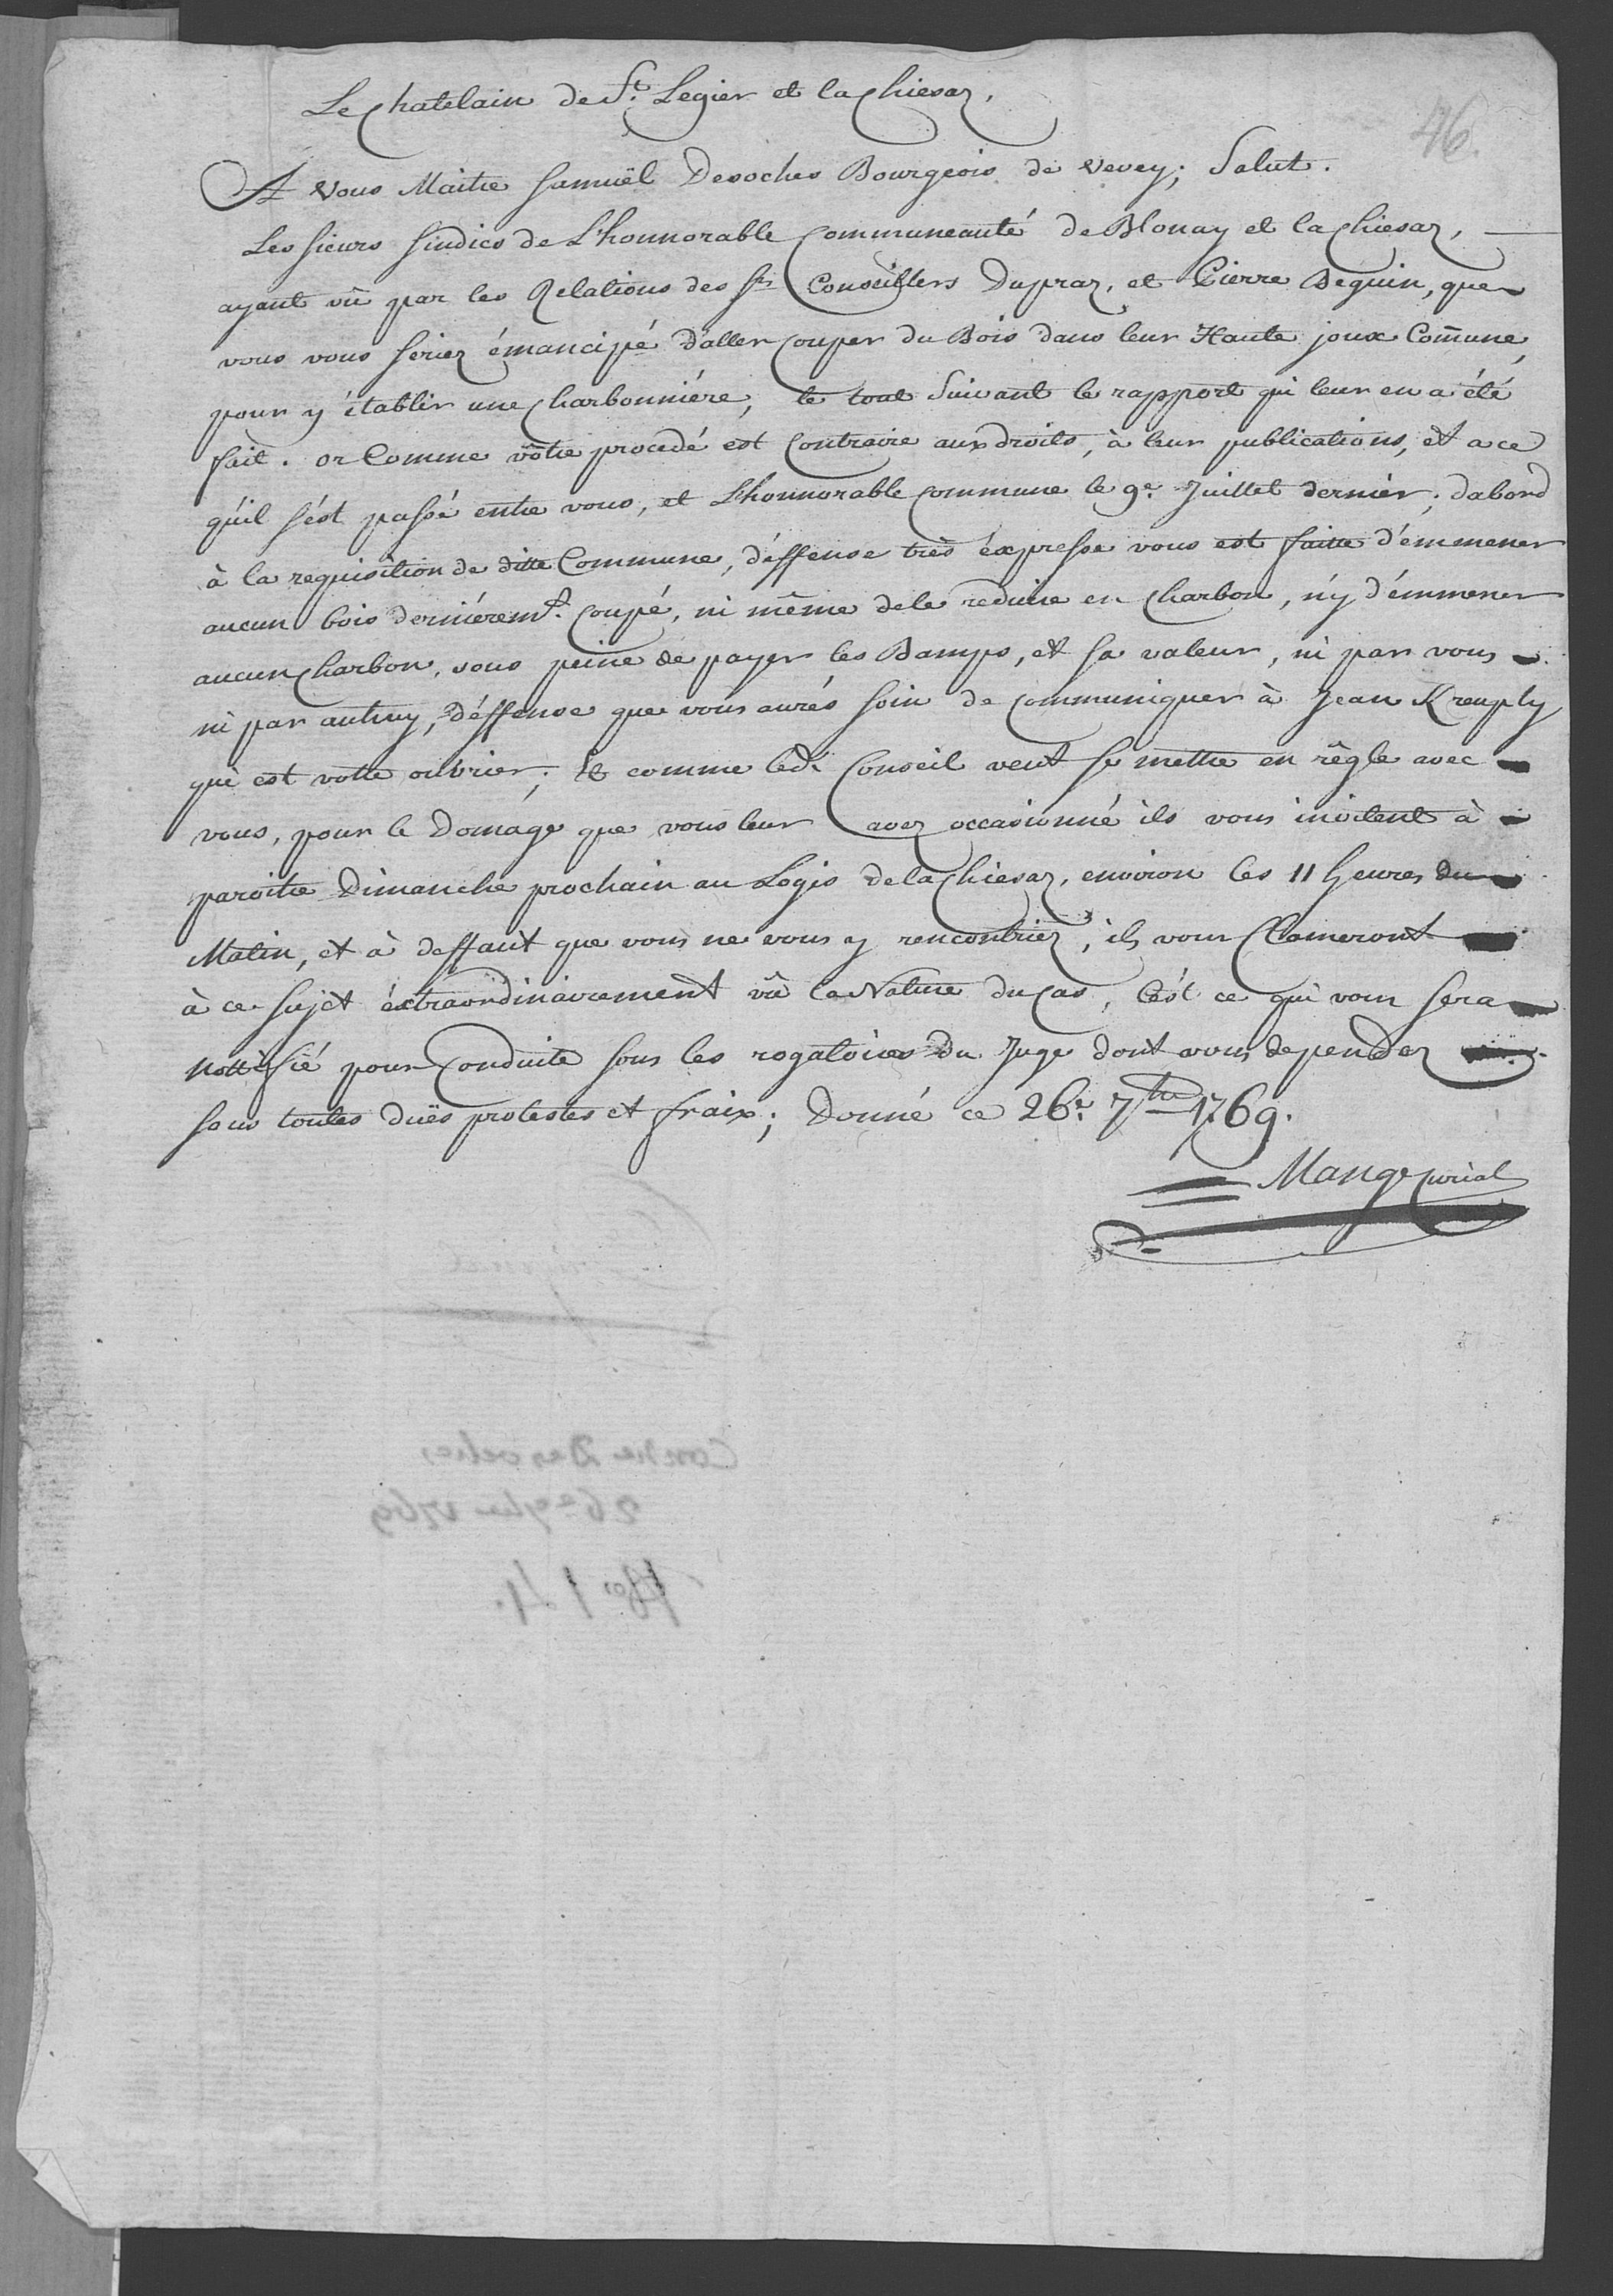 46.
Le Chatelain de St. Legier et la Chiesaz,
A vous Maitre Samuël Desoches Bourgeois de Vevey; Salut.
Les Sieurs Sindics de L'honnorable Communeauté de Blonay et la Chiesaz,
ayant vû par les Relations des Srs Conseillers Dupraz, et Pierre Deguin, que
vous vous seriez émancipé d'aller Couper du Bois dans leur Haute joux Comune,
pour y établir une Charbonniére, le tout Suivant le rapport qui leur en a été
fait. or Comme vôtre procedé est Contraire aux droits, à leur publications, et a ce
quil s'est passé entre vous, et L'honnorable Commune le 9e. Juillet dernier; dabord
à la requisition de ditte Commune, déffense très éxpresse vous est faitte d'émmener
aucun bois derniéremt. Coupé, ni même de le reduire en Charbon, n'y d'émmener
aucun Charbon, sous peine de payer les Bamps, et sa valeur, ni par vous
ni par autruy, déffense que vous aurés soin de Communiquer à Jean Kreuply
qui est votre ouvrier; Et comme ledt. Conseil veut se mettre en règle avec
vous, pour le Domage que vous leur avez occasionné ils vous invitent à
paroitre Dimanche prochain au Logis de la Chiesaz, environ les 11 heures du
Matin, et à deffaut que vous ne vous y rencontriez, ils vous Clameront
à ce sujet éxtraordinairement vû la Nature du Cas, C'est ce qui vous sera
nottifié pour Conduite sous les rogatoires du Juge dont vous dependez
sous toutes duës protestes et fraix; Donné ce 26e. 7bre 1769.
Mange Curial
Contre Desoches
26e 7bre 1769